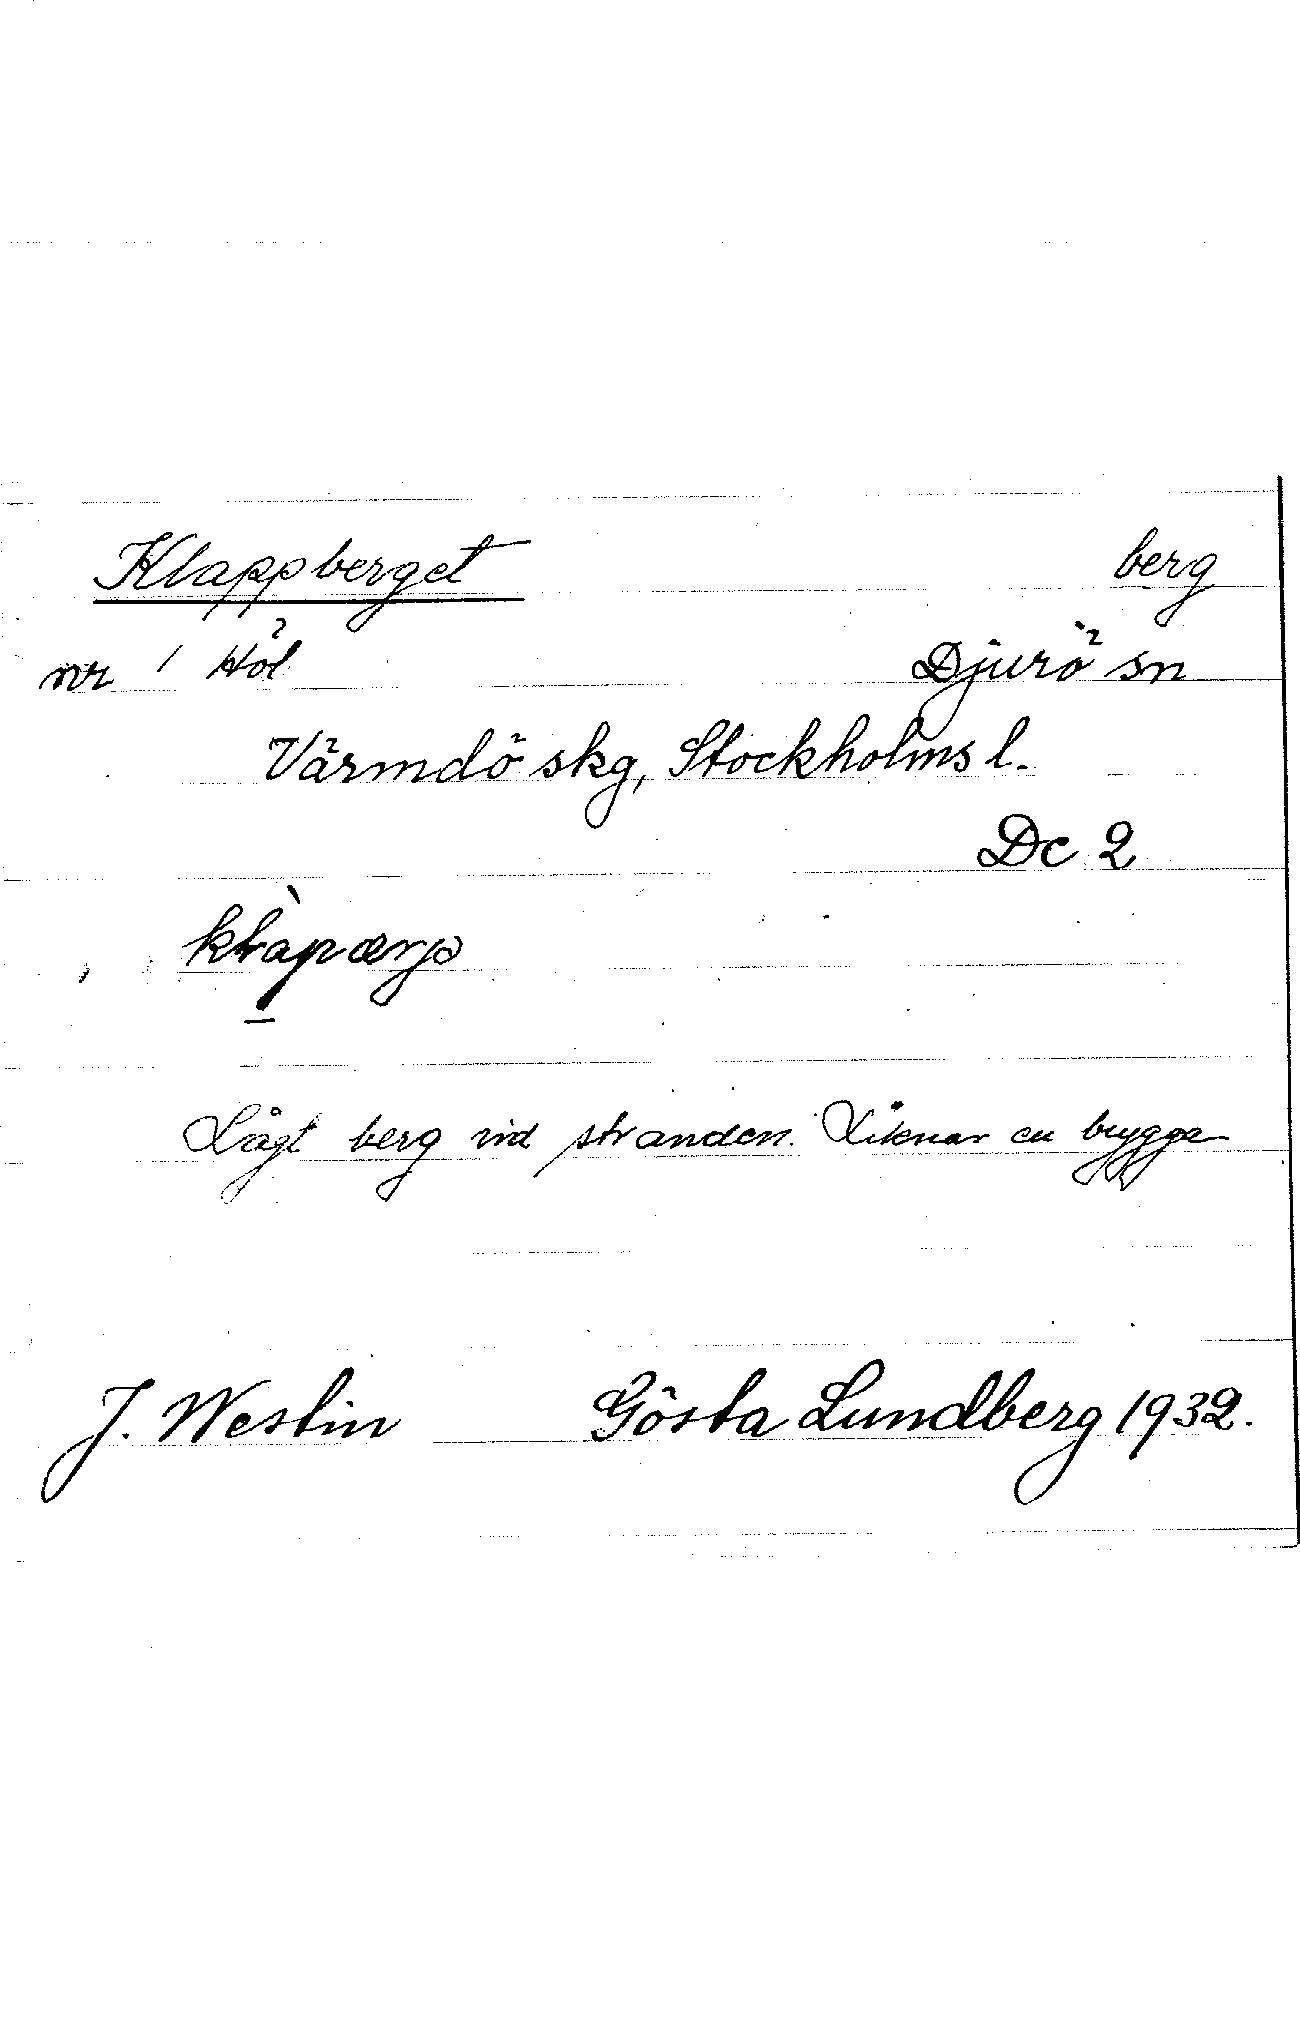 Klappberget berg
nr 1 Höl Djurö sn
Värmdö skg, Stockholms l.
Dc 2
Lågt berg vid stranden. Liknar en brygga
J. Westin Gösta Lundberg 1932.